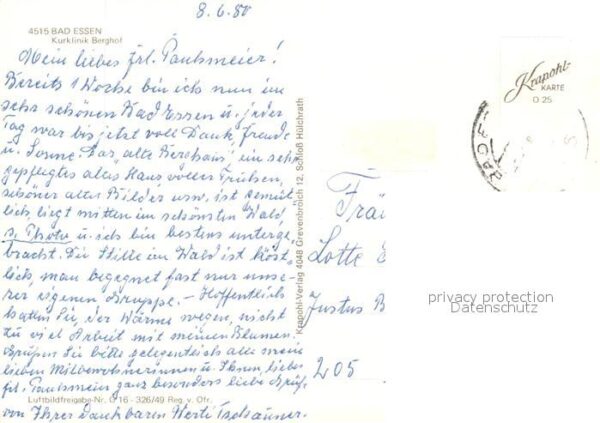 8.6.80
4515 BAD ESSEN
Kurklinik Berghof
Mein liebes Frl. Paulsmeier!
Bereits 1 Woche bin ich nun im
sehr schönen Bad Essen u. jeder
Tag war bis jetzt voll Dank, Freude
u. Sonne. Das "alte Berghaus", ein sehr
gepflegtes altes Haus, voller Truhen,
schöner alter Bilder usw. ist gemüt-
lich, liegt mitten im schönsten Wald,
s. Photo u. ich bin bestens unterge-
bracht. Die Stille im Wald ist köst-
lich, man begegnet fast nur unse-
rer eigenen Gruppe. – Hoffentlich
hatten Sie, der Wärme wegen, nicht
zu viel Arbeit mit meinen Blumen.
Grüßen Sie bitte gelegentlich alle meine
lieben Mitbewohnerinnen u. Ihnen, liebes
Frl. Paulsmeier ganz besonders liebe Grüße
von Ihrer dankbaren
Luftbildfreigabe-Nr. G 16 - 326/49 Reg. v. Ofr.
Krapohl-Verlag 4048 Grevenbroich 12, Schloß Hülchrath
Krapohl-
KARTE
O 25
BAD E
Frä
Lotte
Justus B
205
privacy protection
Datenschutz